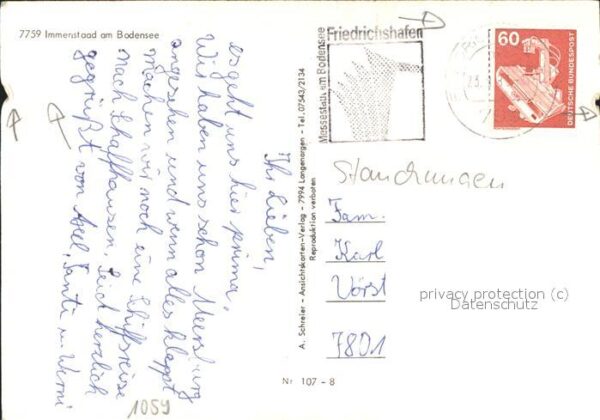 7759 Immenstaad am Bodensee
Ihr Lieben,
es geht uns hier prima.
Wir haben uns schon Meersburg
angesehen und wenn alles klappt
machen wir noch eine Schiffsreise
nach Schaffhausen. Seid herzlich
gegrüßt von Axel, Tanti u. Werni
1059
A. Schreier - Ansichtskarten-Verlag - 7994 Langenargen - Tel. 07543/2134
Reproduktion verboten
Nr 107 - 8
Friedrichshafen
Messestadt am Bodensee
60
DEUTSCHE BUNDESPOST
Fam.
Karl
Vörst
7801
privacy protection (c)
Datenschutz